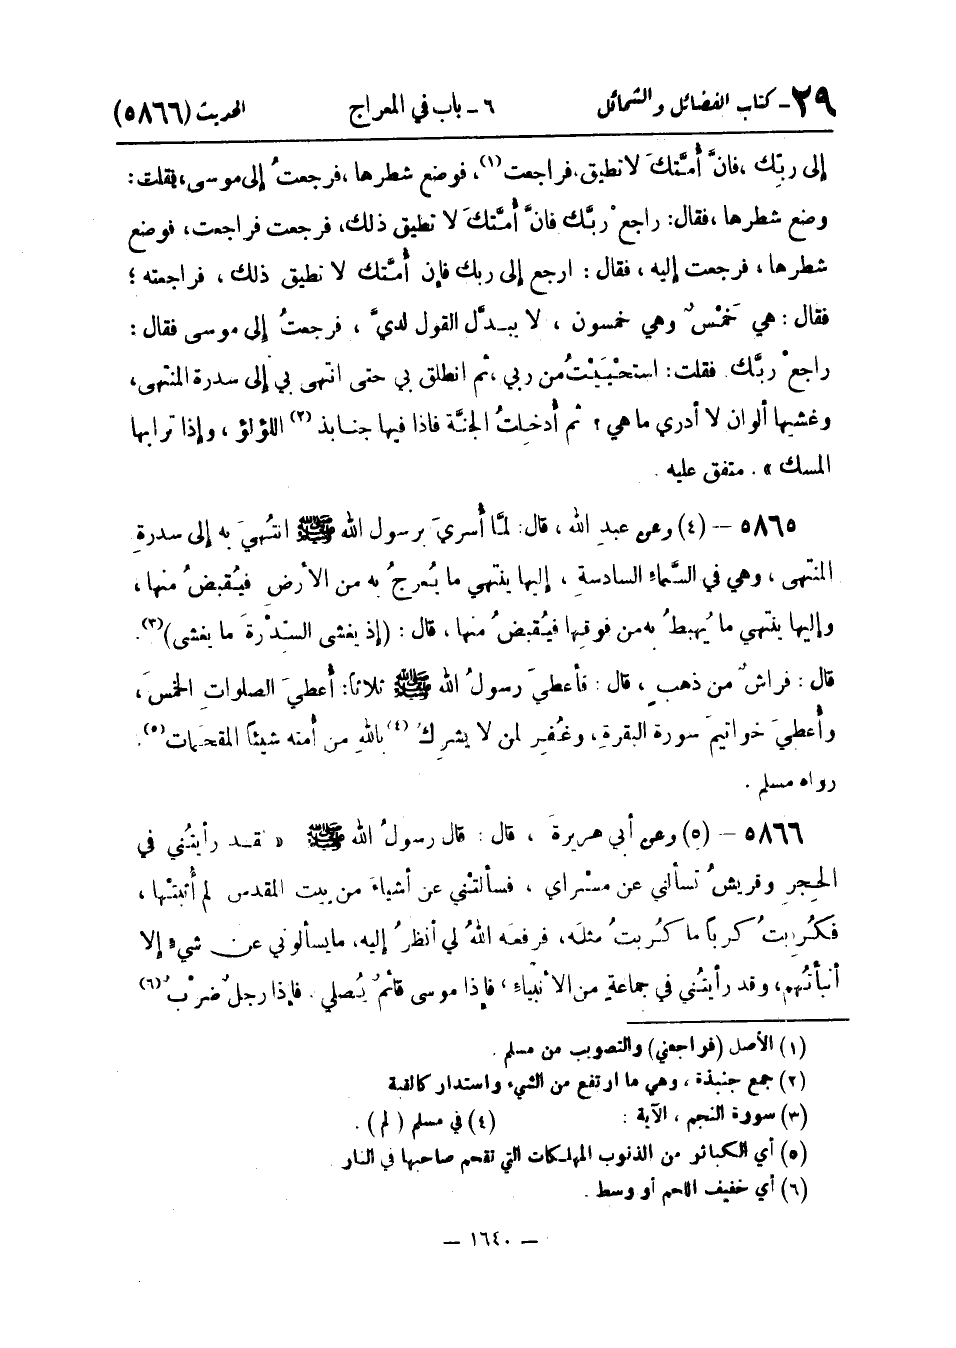 ٢٩ – كتاب الفضائل والشمائل ٦ – باب في المعراج الحديث (٥٨٦٦)
إلى ربِّك ، فانَّ أُمَّتكَ لا تطيق، فراجعت (١) ، فوضع شطرها ، فرجعتُ إلى موسى ، فقلت :
وضع شطرها ، فقال: راجعْ ربَّك فانَّ أُمَّتكَ لا تطيق ذلك، فرجعت فراجعت، فوضع
شطرها ، فرجعت إليه ، فقال : ارجع إلى ربك فإن أُمتك لا تطيق ذلك ، فراجعته ؛
فقال : هي خَمْسٌ وهي خمسون ، لا يبدَّل القول لديَّ ، فرجعتُ إلى موسى فقال :
راجعْ ربَّك فقلت: استحْيَيْتُ من ربي ، ثم انطلق بي حتى انتهى بي إلى سدرة المنتهى،
وغشيها ألوان لا أدري ما هي ؟ ثم أُدخلتُ الجنَّة فاذا فيها جنابذ (٢) اللؤلؤ ، وإذا ترابها
المسك » . متفق عليه .
٥٨٦٥ – (٤) وعن عبدِ الله ، قال: لمَّا أُسريَ برسول الله ﷺ انتُهيَ به إلى سدرةِ
المنتهى ، وهي في السَّماءِ السادسةِ ، إليها ينتهي ما يُعرجُ به من الأرضِ فيُقبضُ منها ،
وإليها ينتهي ما يُهبطُ به من فوقها فيُقبضُ منها ، قال : (إذ يغشى السِّدْرةَ ما يغشى)(٣).
قال : فراشٌ من ذهبٍ ، قال : فأعطيَ رسولُ الله ﷺ ثلاثاً: أُعطيَ الصلواتِ الخمسَ،
وأُعطيَ خواتيمَ سورة البقرةِ، وغُفِر لمن لا يشرِكُ (٤) باللهِ من أمته شيئاً المقحِمات(٥).
رواه مسلم .
٥٨٦٦ – (٥) وعن أبي هريرةَ ، قال : قال رسولُ الله ﷺ « لقد رأيتُني في
الحِجرِ وقريشٌ تسألني عن مَسْراي ، فسألتْني عن أشياءَ من بيت المقدس لم أُثبتْها ،
فكُرِبتُ كرباً ما كُرِبتُ مثلَه، فرفعَه اللهُ لي أنظرُ إليه، ما يسألوني عن شيءٍ إلا
أنبأتُهم، وقد رأيتُني في جماعةٍ من الأنبياءِ، فإذا موسى قائمٌ يُصلي . فإذا رجلٌ ضرْبٌ (٦)
(١) الأصل (فراجعني) والتصويب من مسلم .
(٢) جمع جنبذة ، وهي ما ارتفع من الشيء واستدار كالقبة
(٣) سورة النجم ، الآية : (٤) في مسلم ( لم ) .
(٥) أي الكبائر من الذنوب المهلكات التي تقحم صاحبها في النار
(٦) أي خفيف اللحم أو وسط .
— ١٦٤٠ —